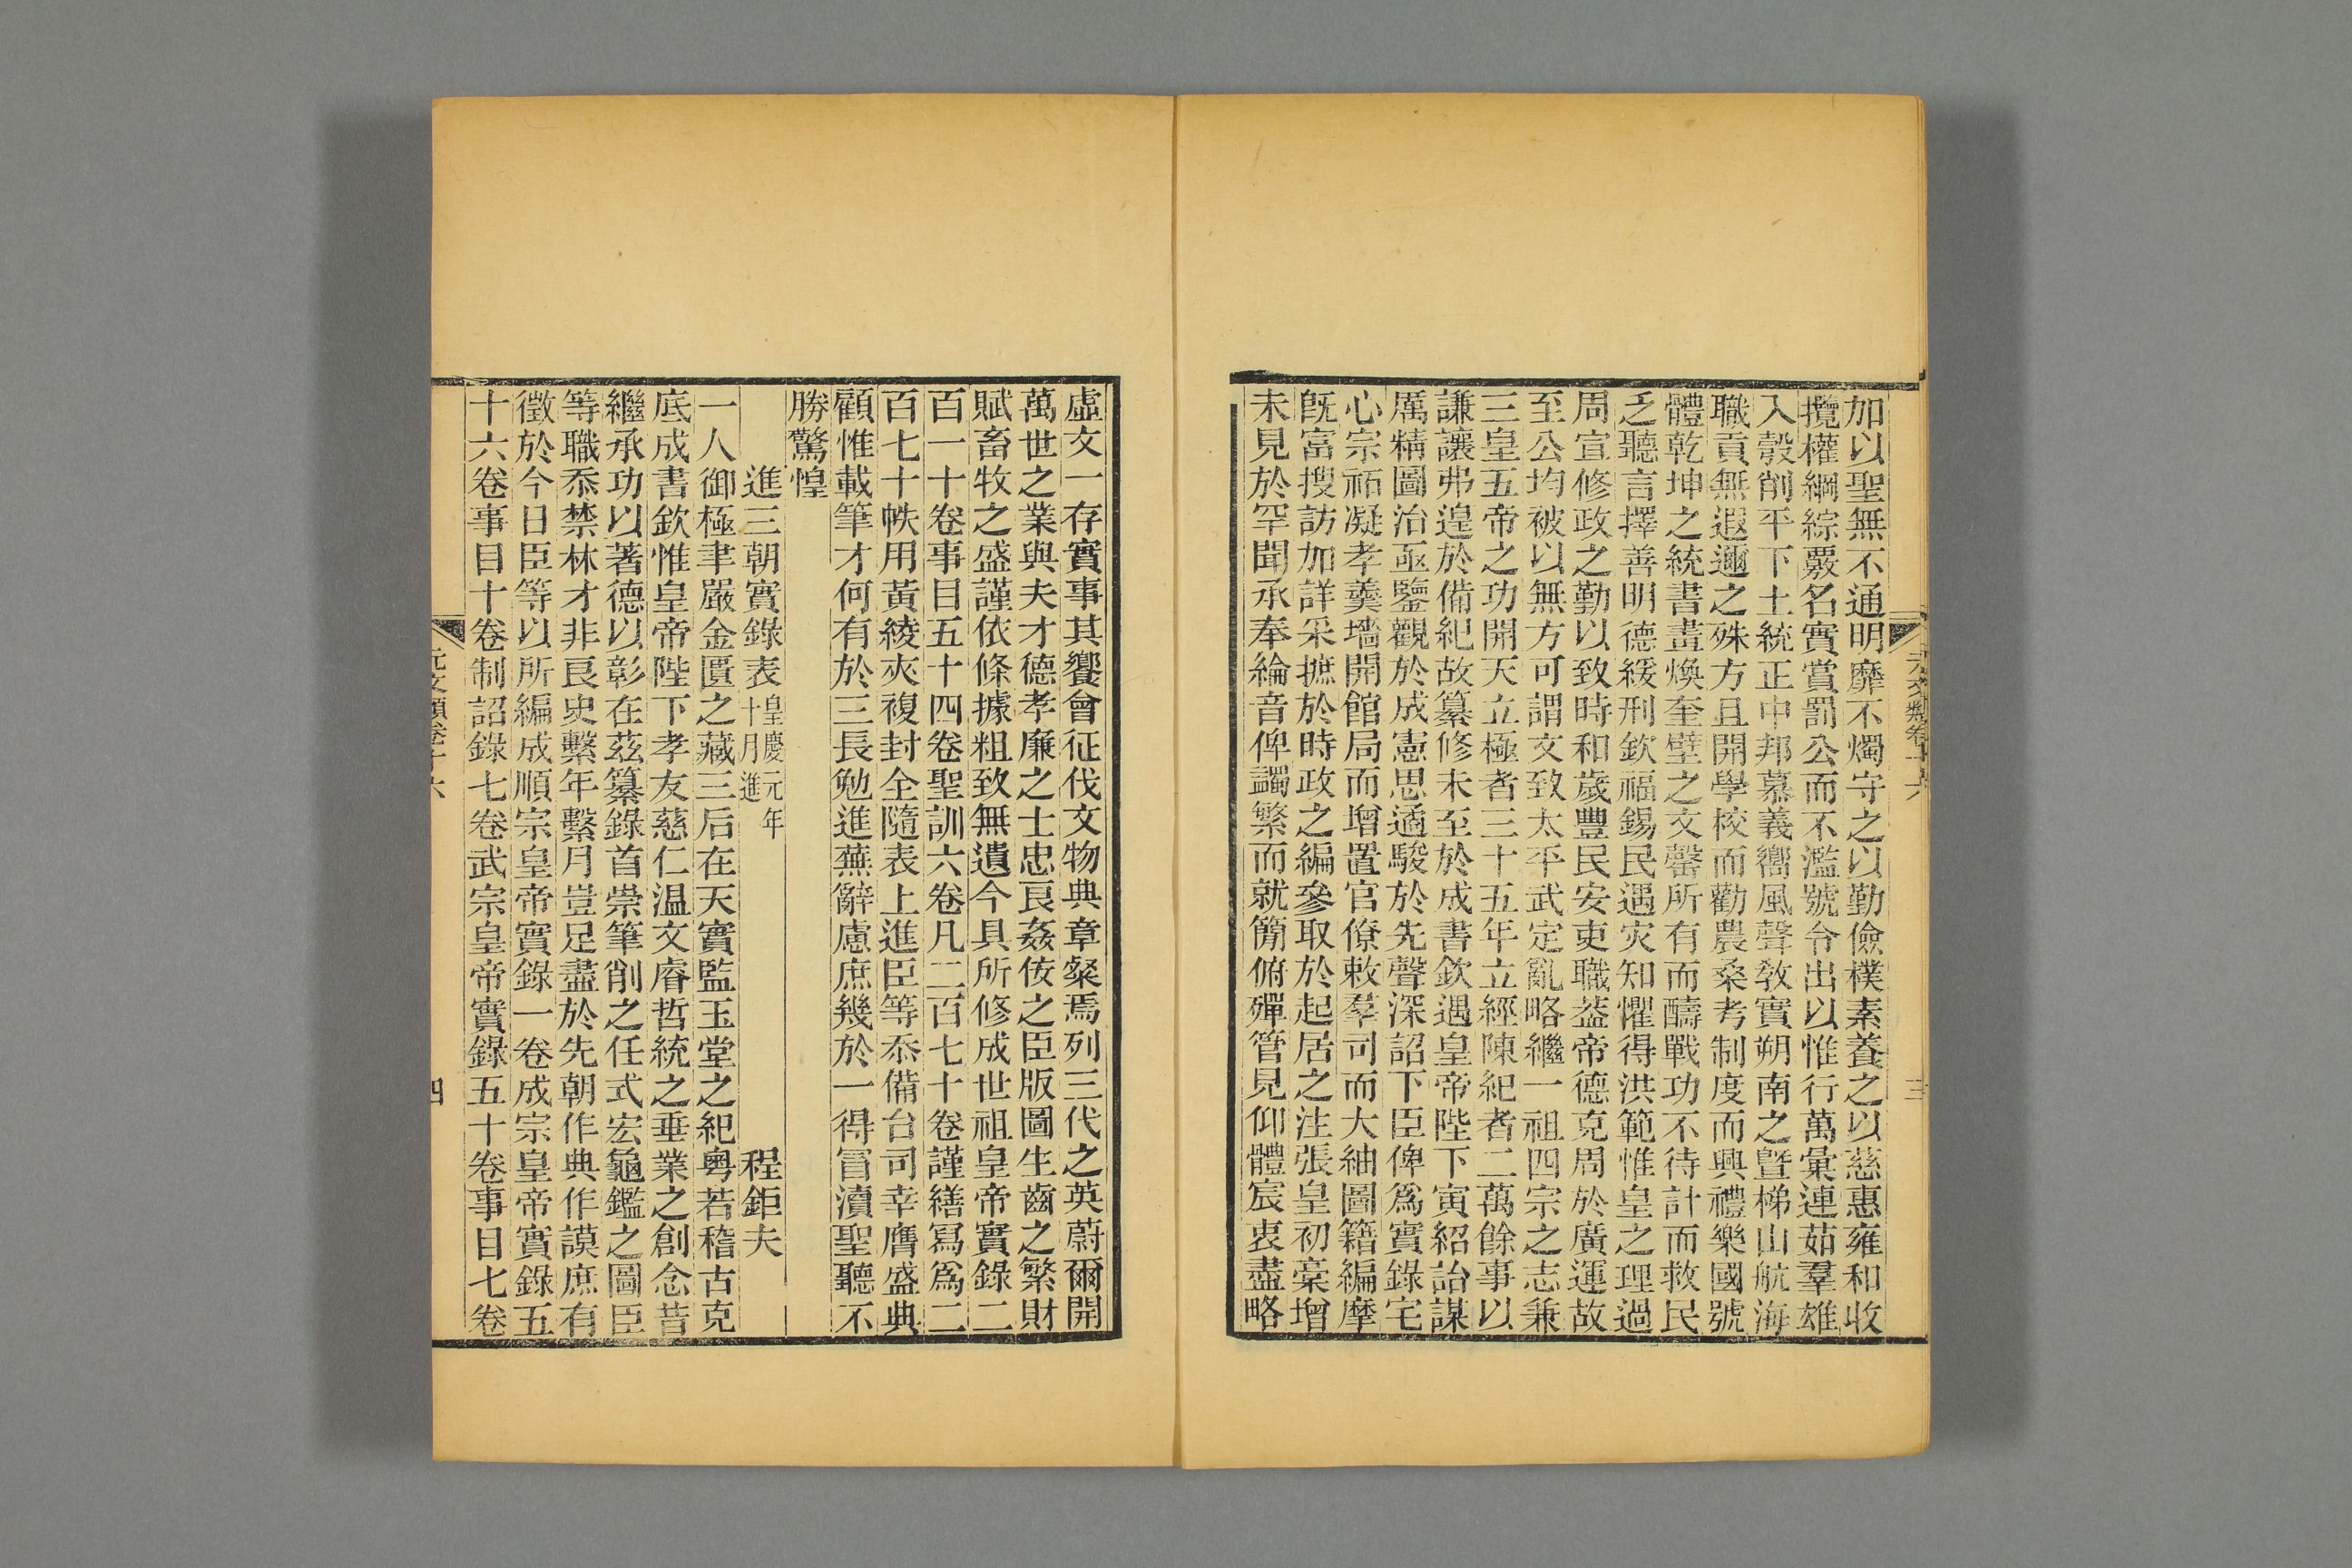 加以聖無不通明靡不燭守之以勤儉樸素養之以慈惠雍和收
攬權綱綜覈名實賞罰公而不濫號令出以惟行萬彙連茹羣雄
入彀削平下土統正中邦慕義嚮風聲敎實朔南之曁梯山航海
職貢無遐邇之殊方且開學校而勸農桑考制度而興禮樂國號
體乾坤之統書畫煥奎壁之文罄所有而醻戰功不待計而救民
乏聽言擇善明德緩刑欽福錫民遇灾知懼得洪範惟皇之理過
周宣修政之勤以致時和歲豐民安吏職葢帝德克周於廣運故
至公均被以無方可謂文致太平武定亂略繼一祖四宗之志兼
三皇五帝之功開天立極者三十五年立經陳紀者二萬餘事以
謙讓弗遑於備紀故纂修未至於成書欽遇皇帝陛下寅紹詒謀
厲精圖治亟鑒觀於成憲思遹駿於先聲深詔下臣俾爲實錄宅
心宗祏凝孝羹墻開館局而增置官僚敕羣司而大紬圖籍編摩
旣富搜訪加詳采摭於時政之編參取於起居之注張皇初稾增
未見於罕聞承奉綸音俾譾繁而就簡俯殫管見仰體宸衷盡略
元文類卷十六
三
虛文一存實事其饗會征伐文物典章粲焉列三代之英蔚爾開
萬世之業與夫才德孝廉之士忠良姦佞之臣版圖生齒之繁財
賦畜牧之盛謹依條據粗致無遺今具所修成世祖皇帝實錄二
百一十卷事目五十四卷聖訓六卷凡二百七十卷謹繕寫爲二
百七十帙用黃綾夾複封全隨表上進臣等忝備台司幸膺盛典
顧惟載筆才何有於三長勉進蕪辭慮庶幾於一得冒瀆聖聽不
勝驚惶
進三朝實錄表皇慶元年十月進 程鉅夫
一人御極聿嚴金匱之藏三后在天實監玉堂之紀粵若稽古克
底成書欽惟皇帝陛下孝友慈仁温文睿哲統之垂業之創念昔
繼承功以著德以彰在茲纂錄首崇筆削之任式宏龜鑑之圖臣
等職忝禁林才非良史繫年繫月豈足盡於先朝作典作謨庶有
徵於今日臣等以所編成順宗皇帝實錄一卷成宗皇帝實錄五
十六卷事目十卷制詔錄七卷武宗皇帝實錄五十卷事目七卷
元文類卷十六
四